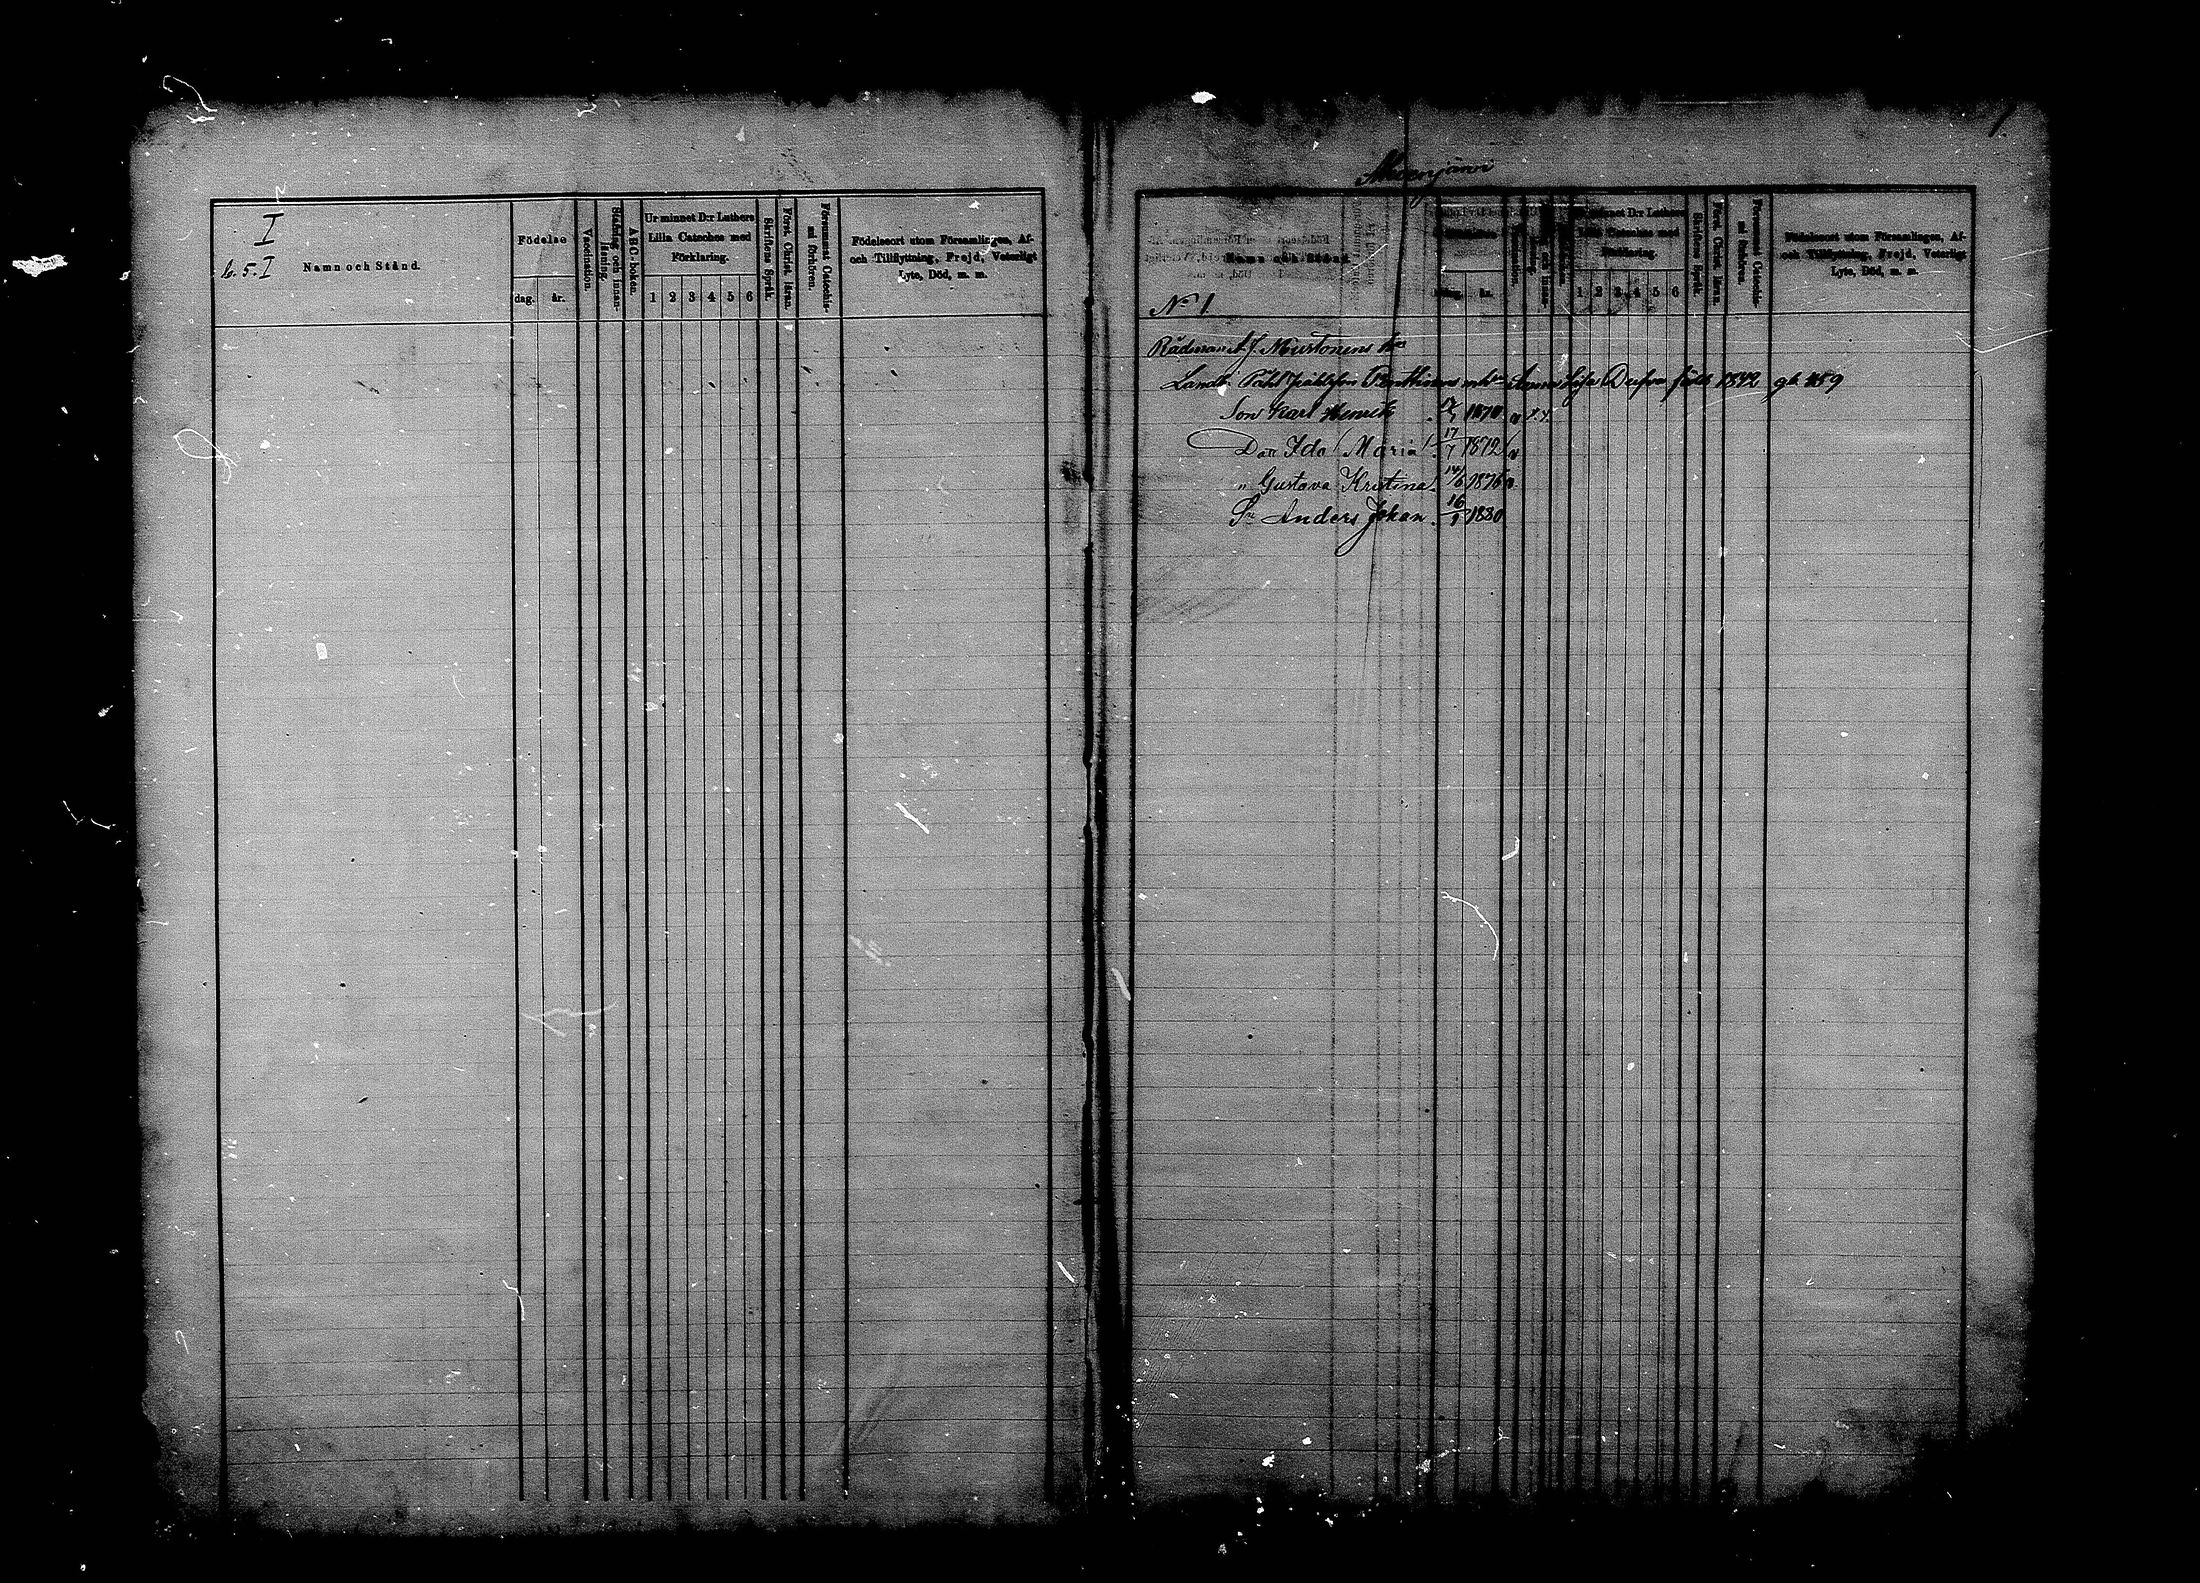 I
b. 5. I
Namn och Stånd.
Födelse
dag. år.
Vaccination.
Stafning och innan-läsning.
ABC-boken.
Ur minnet D:r Luthers
Lilla Cateches med
Förklaring.
1 2 3 4 5 6
Skriftens Språk.
Först. Christ. läran.
Försummat Catechis-
mi förhören.
Födelseort utom Församlingen, Af-
och Tillflyttning, Frejd, Veterligt
Lyte, Död, m. m.
1
Namn och Stånd.
dag. år.
Ur minnet D:r Luthers
Lilla Cateches med
Förklaring.
1 2 3 4 5 6
Skriftens Språk.
Först. Christ. läran.
Försummat Catechis-
mi förhören.
Födelseort utom Församlingen, Af-
och Tillflyttning, Frejd, Veterligt
Lyte, Död, m. m.
No 1
Rådman A. J. Mustonens
Landb. Påhl Påhlsson Anna född 1842
Son Karl Henrik 1870
Dotr Ida Maria 17/7 1872
" Gustava Kristina 14/6 1876
Sn Anders Johan 16/1 1880